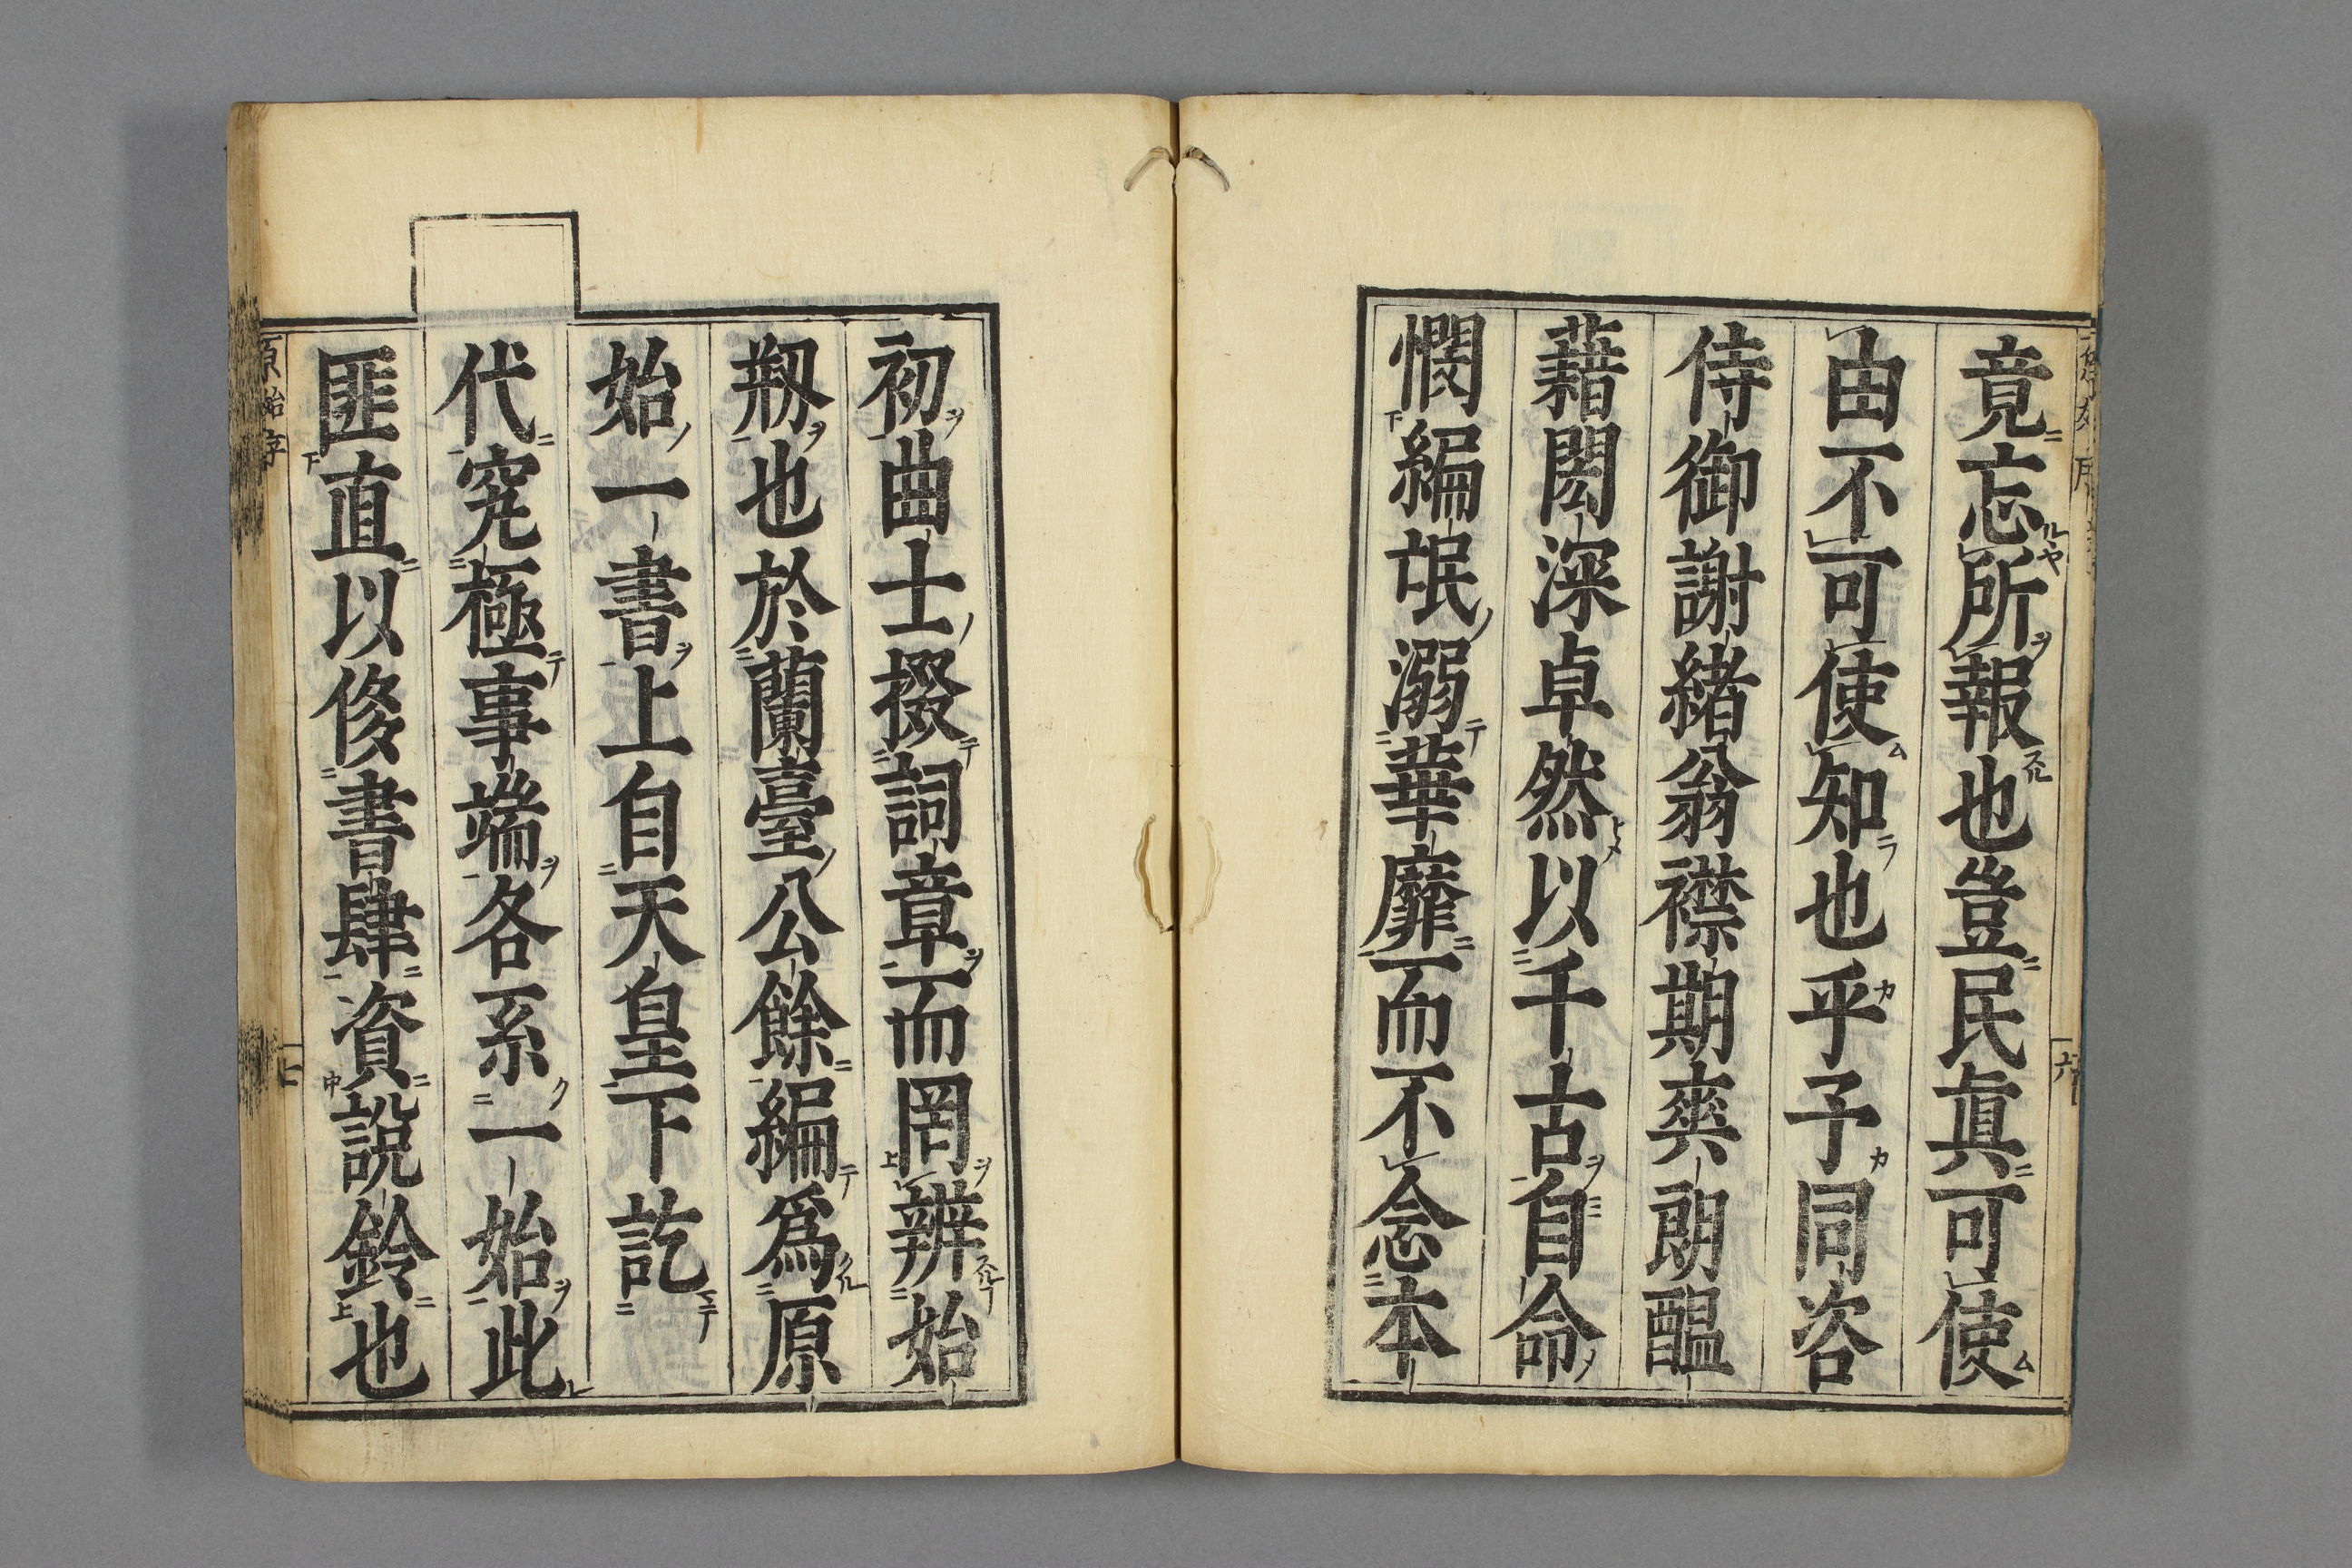 竟忘所報也豈民真可使
由不可使知也乎予同咨
侍御謝緒翁襟期爽朗醞
藉閎深卓然以千古自命
憫編氓溺華靡而不念本
初曲士掇詞章而罔辨始
剏也於蘭臺公餘編爲原
始一書上自天皇下訖
代究極事端各系一始此
匪直以修書肆資説鈴也
原始序